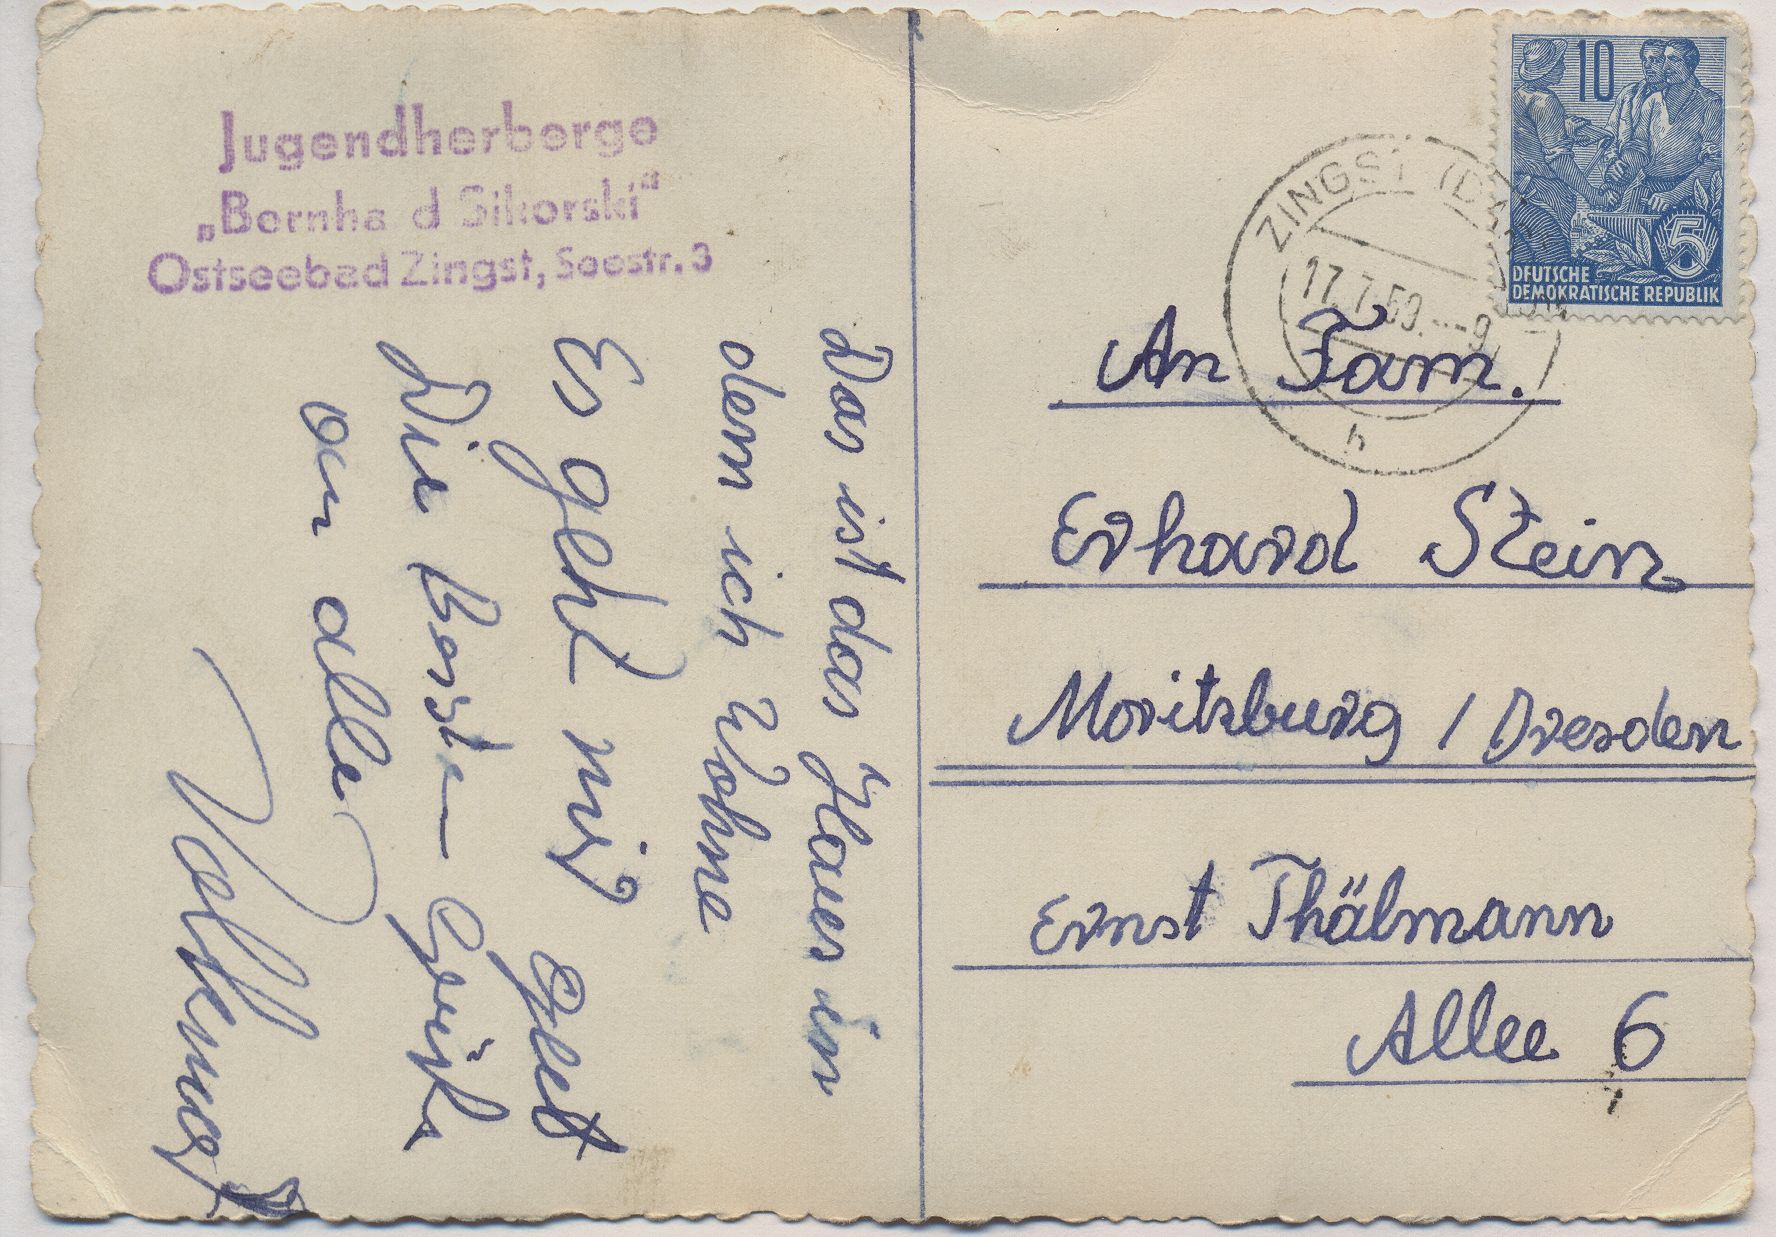 Jugendherberge
„Bernha d Sikorski“
Ostseebad Zingst, Seestr. 3
Das ist das Haus in
dem ich Wohne
Es geht mir gut
Die besten Grüße
an alle
Volkmar
10
5
DEUTSCHE
DEMOKRATISCHE REPUBLIK
ZINGST
17.7.59.--9
h
An Fam.
Erhard Stein
Moritzburg / Dresden
Ernst Thälmann
Allee 6